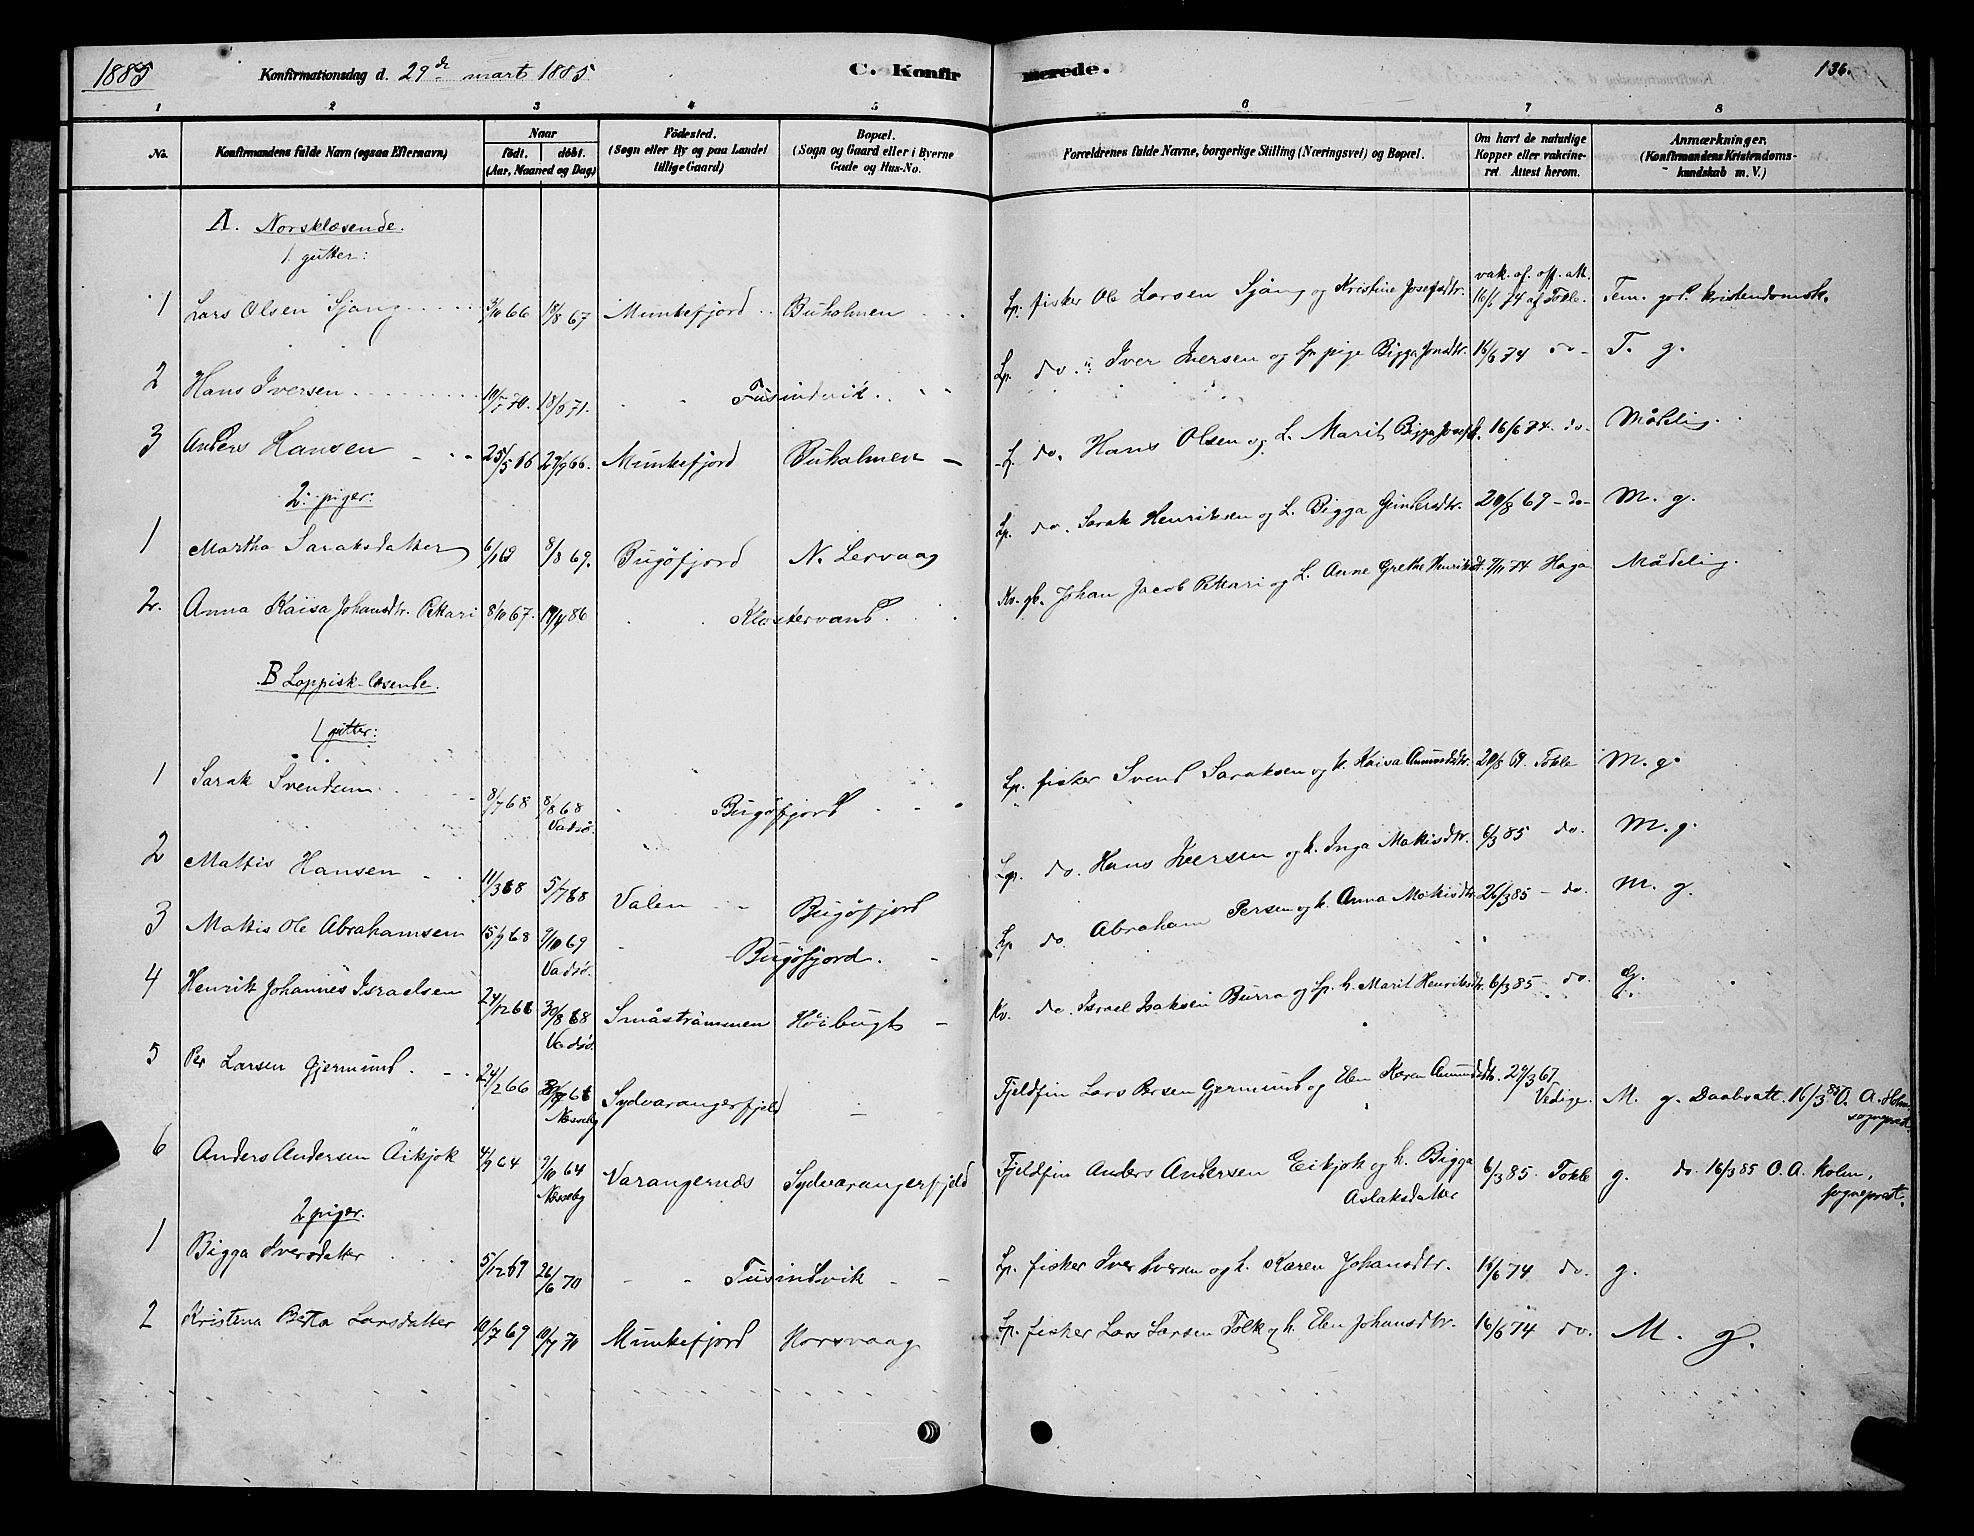 1885 Konfirmationsdag d. 29de mart 1885. C. Konfirmerede. 136.
1 2 3 4 5 6 7 8
No. Konfirmandens fulde Navn (ogsaa Efternavn) Naar födt. döbt. (Aar, Maaned og Dag) Födested. (Sogn eller By og paa Landet tillige Gaard) Bopæl. (Sogn og Gaard eller i Byerne Gade og Hus-No. Forældrenes fulde Navne, borgerlige Stilling (Næringsvei) og Bopæl. Om havt de naturlige Kopper eller vakcineret. Attest herom. Anmærkninger. (Konfirmandens Kristendomskundskab m. V.)
A. Norsklæsende.
1. gutter:
1 Lars Olsen Sjang 3/10 66 18/8 67 Munkefjord Buholmen Lp. fisker Ole Larsen Sjang og Kristine Josefsdtr. vak. af. off. att. 16/6 74 af Tokle. Tem. god kristendomsk.
2 Hans Iversen 10/7 70. 18/6 71. Tusindvik Lp. do. Iver Iversen og Lp. pige Bigga Jonsdtr. 16/6 74 do- T. g.
3 Anders Hansen 25/5 66 29/9 66. Munkefjord Buholmen L. do. Hans Olsen og L. Marit Bigga Josefsd. 16/6 74. do. Mådelig.
2. piger:
1 Martha Saraksdatter 6/1 69 8/8 69. Bugöfjord N. Lervaag Lp. do. Sarak Henriksen og L. Bigga Gundersdtr. 20/8 69 - do- M. g.
2. Anna Kaisa Johansdtr. Pettari 8/10 67. Klostervand. Kv. gb. Johan Jacob Pettari og L. Anne Grethe Henriksdt. 7/11 74 Haga Mådelig.
B Lappisk-læsende.
1 gutter:
1 Sarak Svendsen 8/7 68 8/8 68 Vadsö. Bugöfjord Lp. fisker Svend Saraksen og h. Kaisa Amundsdtr. 20/8 69. Tokle M. g.
2 Mattis Hansen 11/3 68 5/7 68 Valen Bugöfjord Lp. do. Hans Iversen og h. Inga Mattisdtr. 6/3 85 do. M. g.
3 Mattis Ole Abrahamsen 15/9 68 9/10 69 Vadsö. Bugöfjord. Lp. do. Abraham Persen og h. Anna Matisdtr. 26/3 85 - do. M. g.
4 Henrik Johannes Israelsen 24/12 66 30/8 68 Vadsö. Småströmmen Höibugt Kv. do. Israel Isaksen Burra og Lp. h. Marit Henriksdtr. 6/3 85 do. G.
5 Per Larsen Gjermund 24/2 66 Næsseby Sydvarangerfjeld Fjeldfin Lars Persen Gjermund og Elen Karen Amundsdtr. 29/3 67 Vedige. M. g. Daabsatt. 16/3 85 O. A. Holm, sogneprest.
6 Anders Andersen Äikjok 4/9 64 9/10 64 Næsseby Varangernæs Sydvarangerfjeld Fjeldfin Anders Andersen Eikjok og h. Bigga Aslaksdatter 6/3 85. Tokle g. do. 16/3 85 O. A. Holm, sogneprest.
2 piger.
1 Bigga Iversdatter 5/12 69 26/6 70 Tusindvik Lp. fisker Iver Iversen og h. Karen Johansdtr. 16/6 74 do. g.
2 Kristena Berta Larsdatter 10/7 69 10/7 70 Munkefjord Korsvaag Lp. fisker Lars Larsen Folk og h. Elen Johansdtr. 16/6 74 do. M. g.